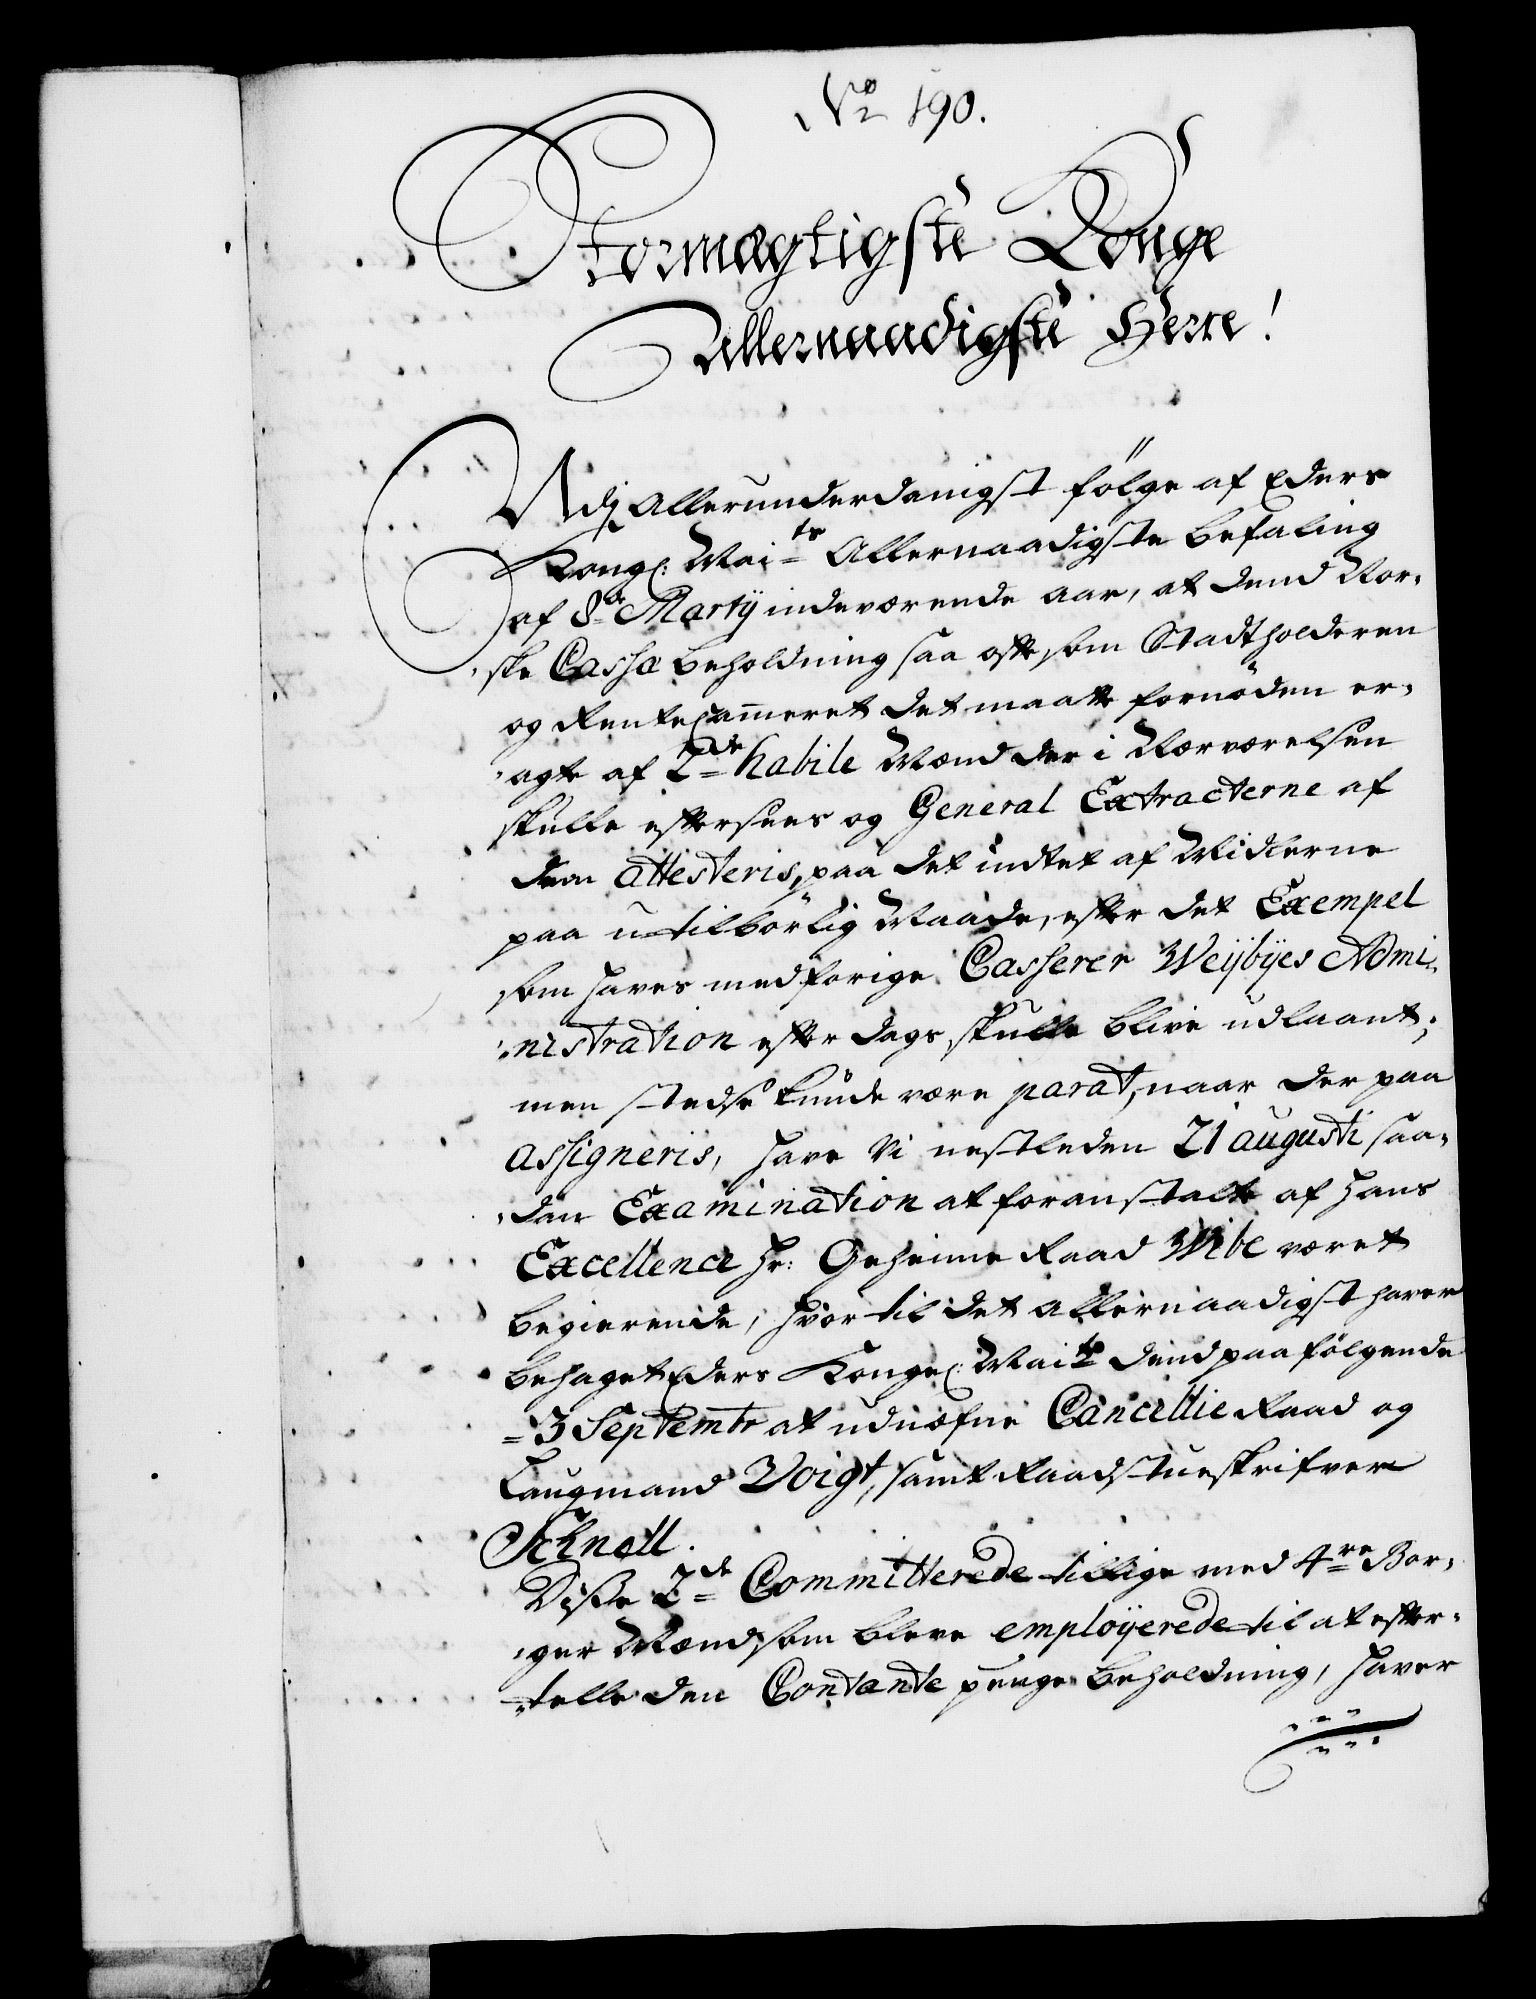 No 190.
Stormægtigste Konge
Allernaadigste Herre!
Udj Allerunderdanigst følge af Eders
Kongl: Maits Allernaadigste befaling
af 8de Martij indeværende aar, at dend Nor-
ske Cassæ beholdning saa ofte som Stadtholderen
og RenteCammeret det maatte fornöden er-
agte af 2de habile Mænd der i Nærværelsen
skulle eftersees og General Extracterne af
dem attesteris, paa det indtet af Midlerne
paa utilbörlig Maade, efter det Exempel
som haves med forige Casserer Weijbyes Admi-
nistration efter dags skulle blive udlaant;
men stedse kunde være parat, naar der paa
assigneris, have Vi nestleden 21 augusti saa-
dan Examination at foranstalte af hans
Excellence Hr: Geheime Raad Wibe været
begierende, hvortil det allernaadigst haver
behaget Eders Kongel: Maits dend paafølgende
3 Septembr at udnæfne Cancellie Raad og
Laugmand Voigt, samt Raadstueskrifver
Schnell.
Disse 2de Committerede tillige med 4re Bor-
ger Mænd som bleve employerede til at efter-
telle den Contante penge beholdning, haver